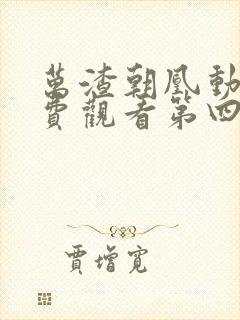 萬渣朝凰動
費觀看第四
賈增寬